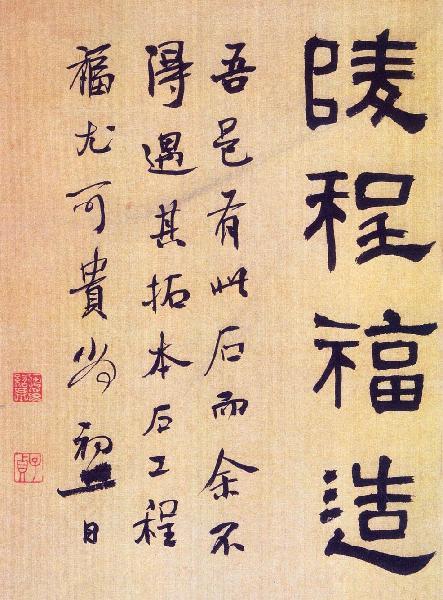 陵程福造
吾邑有此石而余不
得遇其拓本石工程
福尤可貴 日
子貞